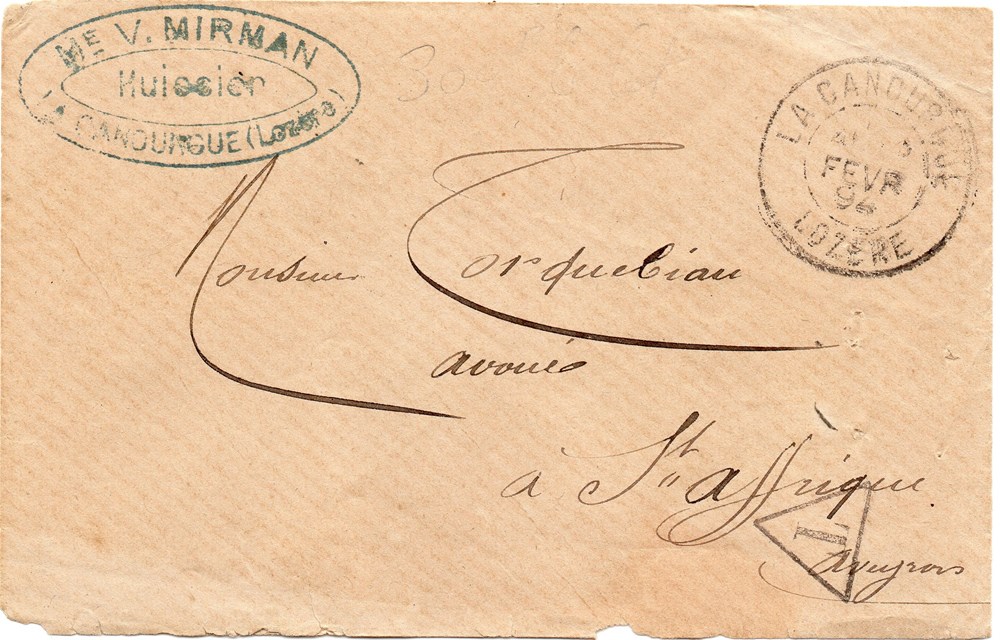 ME V. MIRMAN
Huissier
LA CANOURGUE (Lozère)
LA CANOURGUE
FEVR
LOZERE
Monsieur Torquebiau
avoué
à St. affrique
T
Aveyron